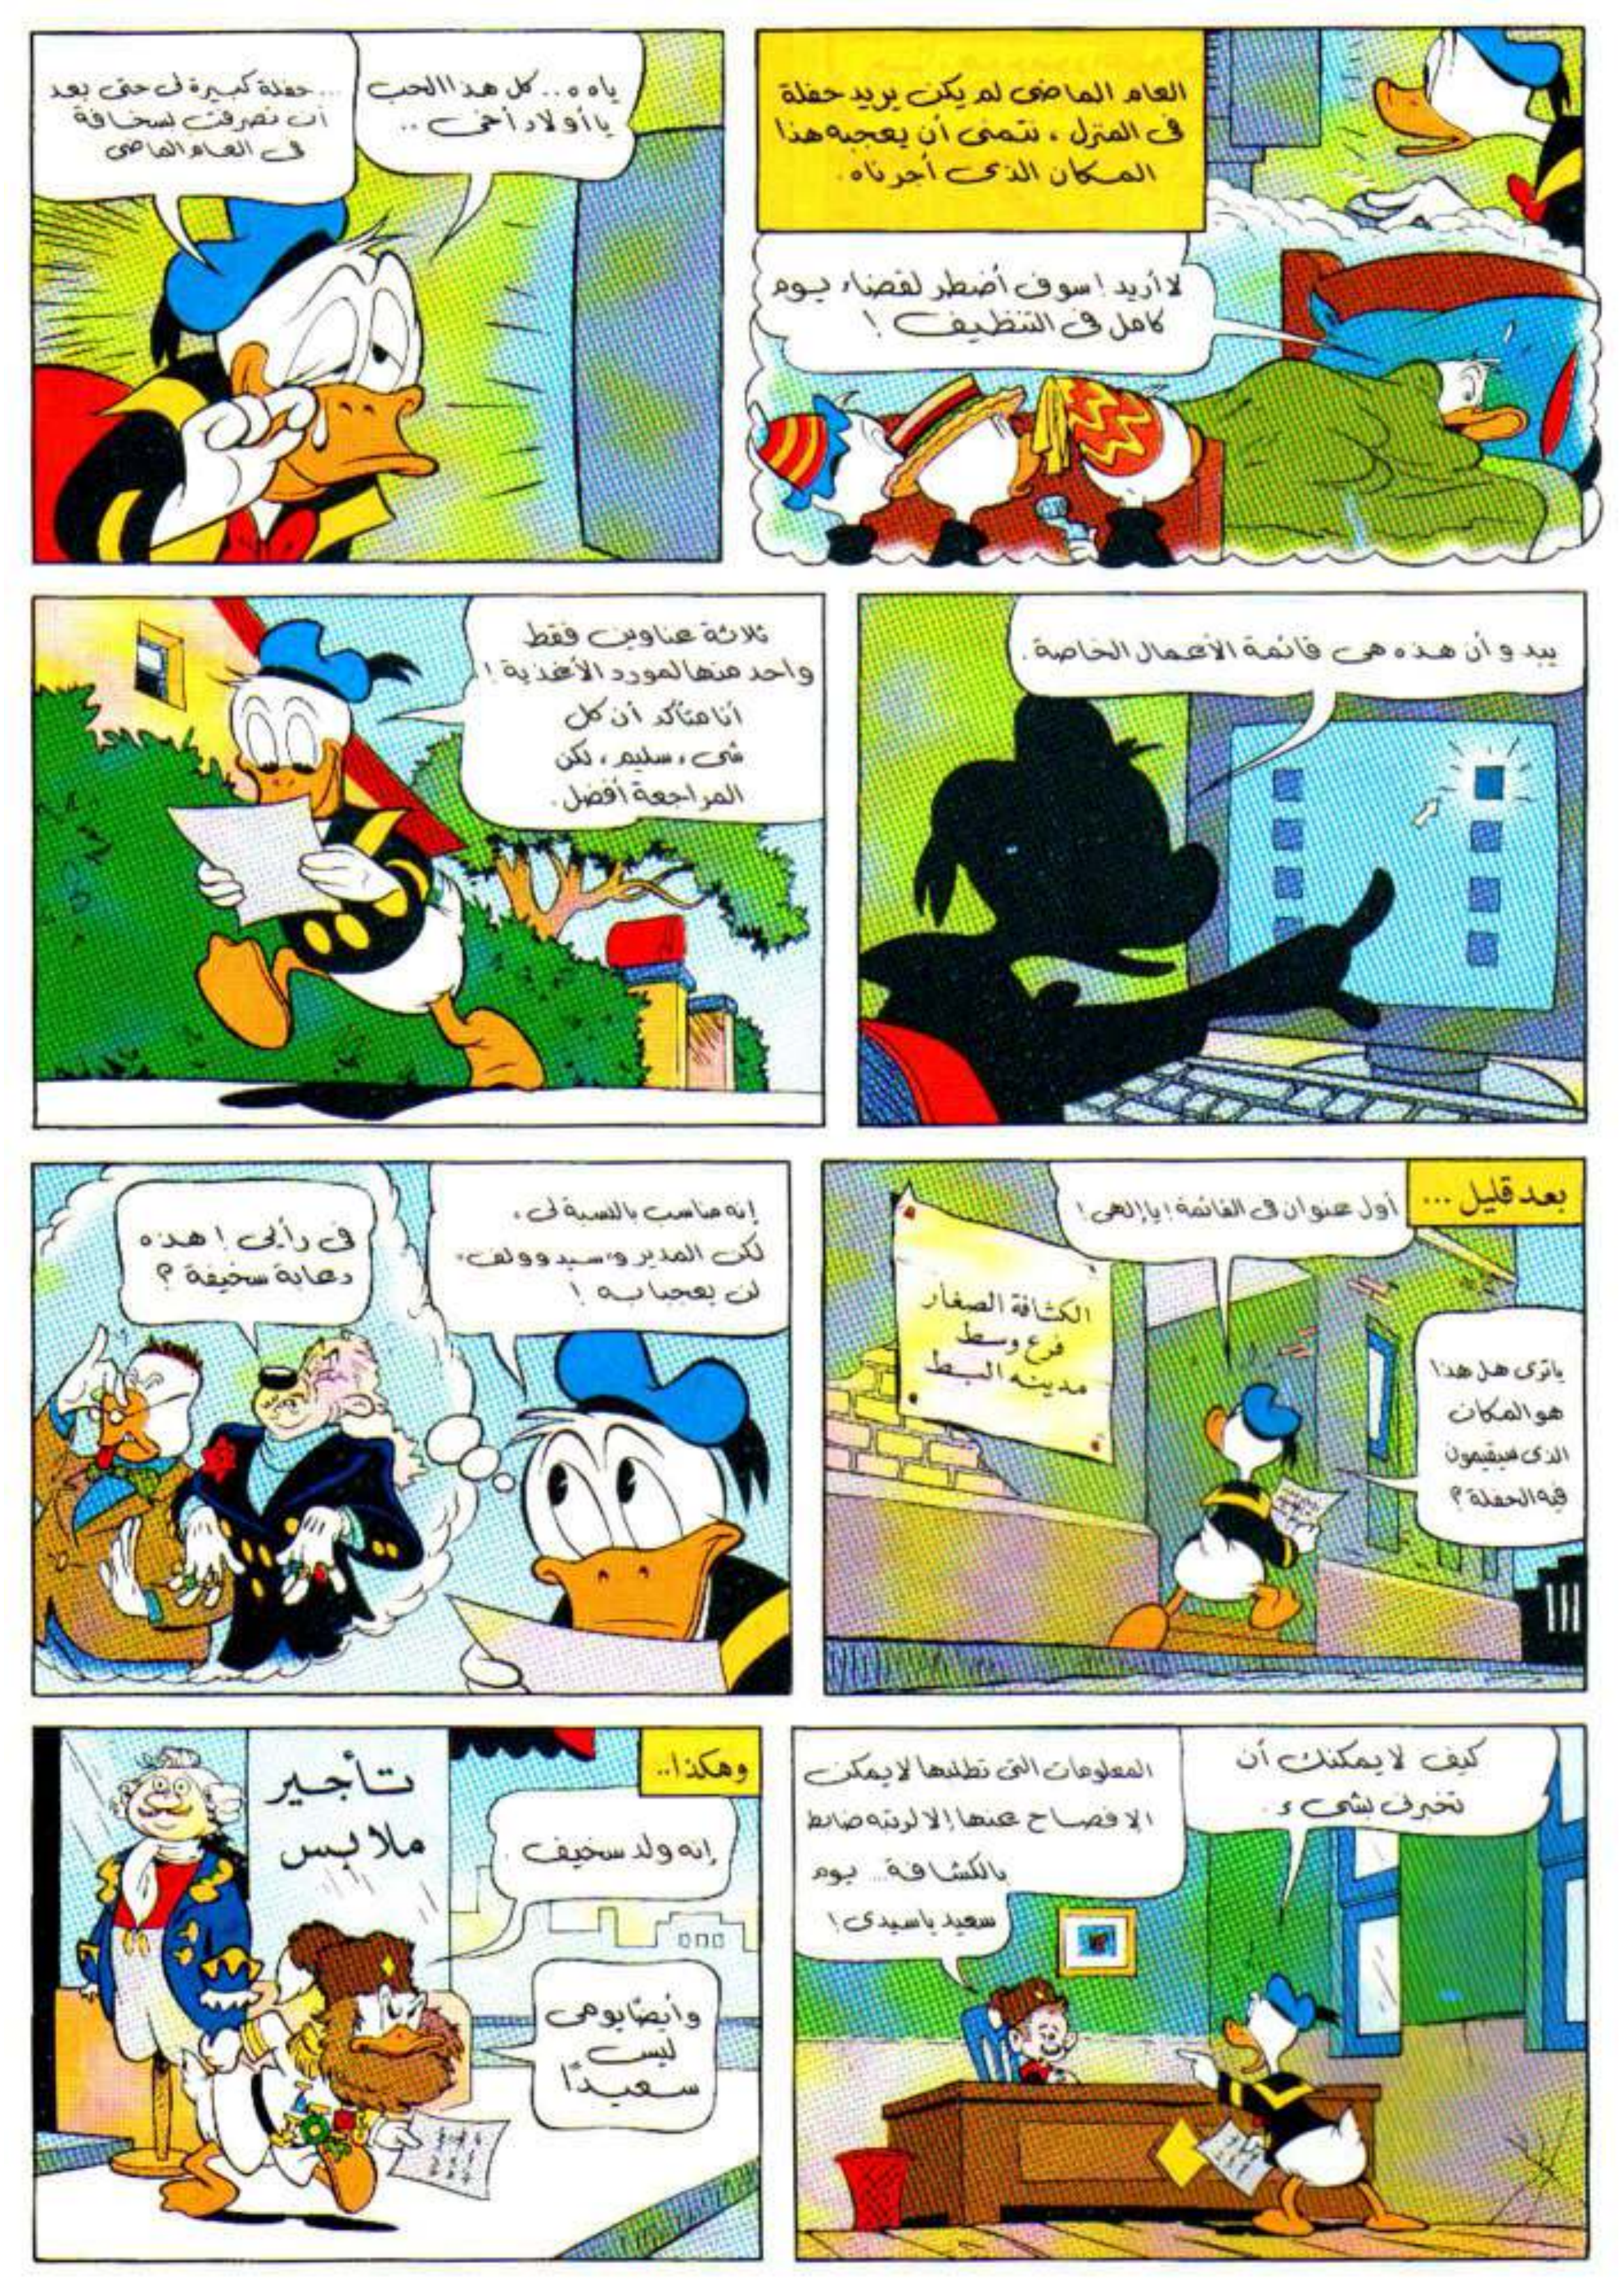 العام الماضى لم يكن يريد حفلة
فى المنزل، نتمنى أن يعجبه هذا
المكان الذى أجرناه.
لا أريد! سوف أضطر لقضاء يوم
كامل فى التنظيف!
ياه ه.. كل هذا الحب
يا أولاد أخى ..
... حفلة كبيرة لى حتى بعد
أن تصرفت لسخافة
فى العام الماضى
يبدو أن هذه هى قائمة الأعمال الخاصة.
ثلاثة عناوين فقط
واحد منها لمورد الأغذية!
أنا متأكد أن كل
شىء سليم، لكن
المراجعة أفضل.
بعد قليل ...
أول عنوان فى القائمة! يا إلهى!
الكشافة الصغار
فرع وسط
مدينه البط
ياترى هل هذا
هو المكان
الذى سيقيمون
فيه الحفلة؟
إنه مناسب بالنسبة لى،
لكن المدير و"سيد وولف"
لن يعجبا به!
فى رأيى! هذه
دعابة سخيفة؟
كيف لا يمكنك أن
تخبرنى بشىء.
المعلومات التى تطلبها لا يمكن
الإفصاح عنها إلا لرتبه ضابط
بالكشافة... يوم
سعيد ياسيدى!
وهكذا..
تأجير
ملابس
إنه ولد سخيف.
وأيضًا يومى
ليس
سعيدًا